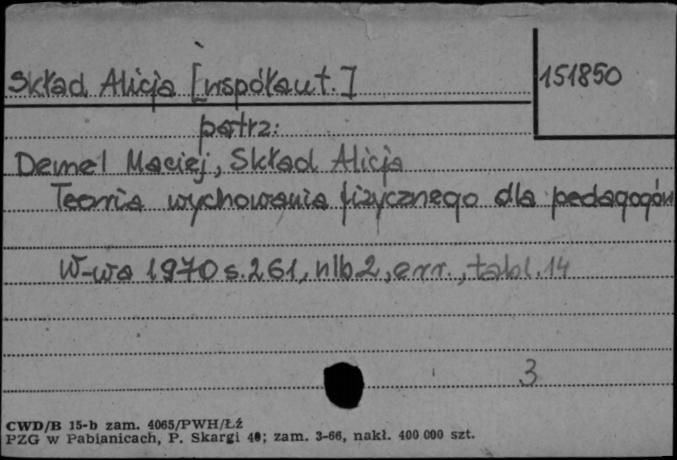 Skład Alicja [współaut.]
151850
patrz:
Demel Maciej, Skład Alicja
Teoria wychowania fizycznego dla pedagogów
W-wa 1970 s. 261, nlb 2, err., tabl. 14
3
CWD/B 15-b zam. 4065/PWH/Łź
PZG w Pabianicach, P. Skargi 40; zam. 3-66, nakł. 400 000 szt.